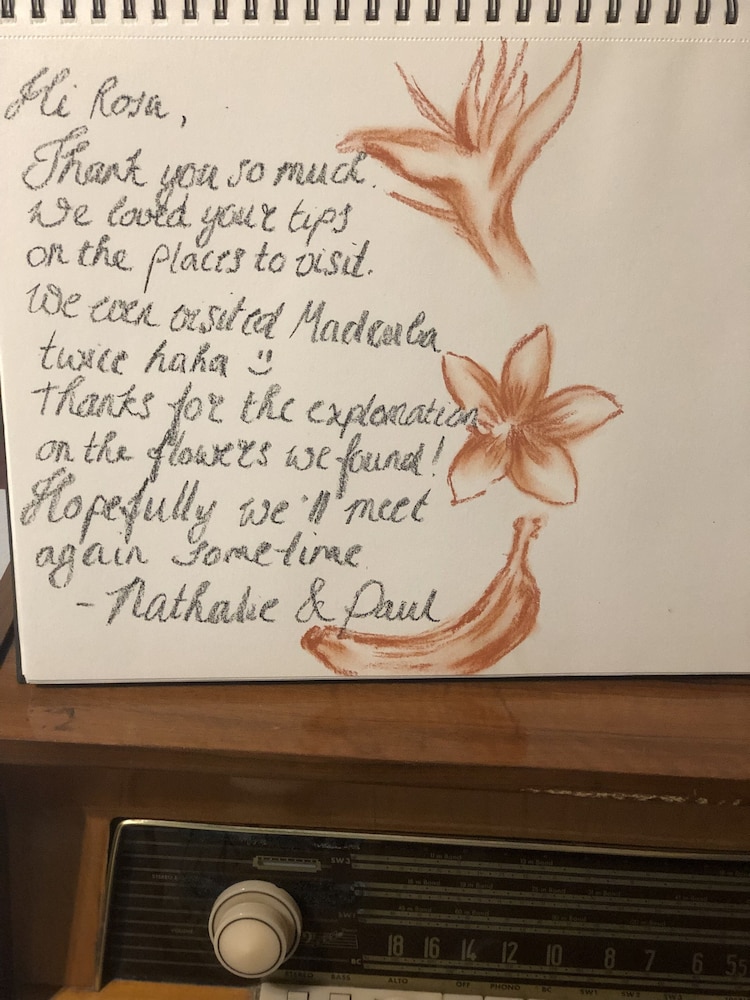 Hi Rosa,
Thank you so much.
We loved your tips
on the places to visit.
We even visited
twice haha :)
Thanks for the explanation
on the flowers we found!
Hopefully we'll meet
again sometime
- Nathalie & Paul
SW2
SW1
18 16 14 12 10 8 7 6 55
BC
STEREO BASS ALTO OFF PHONO BC SW1